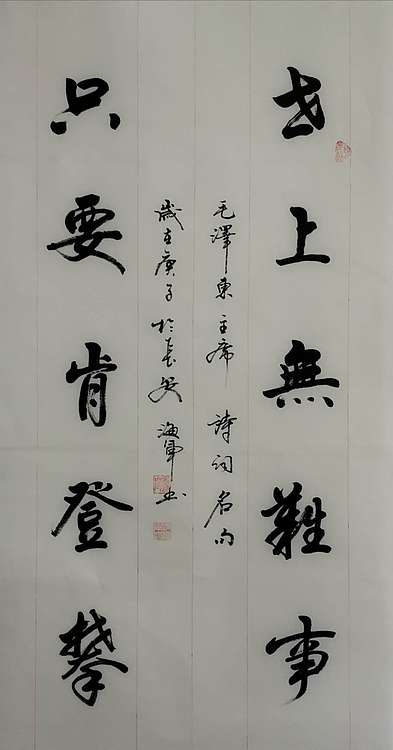 世上無難事
只要肯登攀
毛澤東主席 詩詞名句
歲在庚子於長安 海軍書